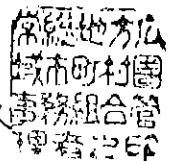 常総地方広
域市町村圏
事務組合管
理者之印